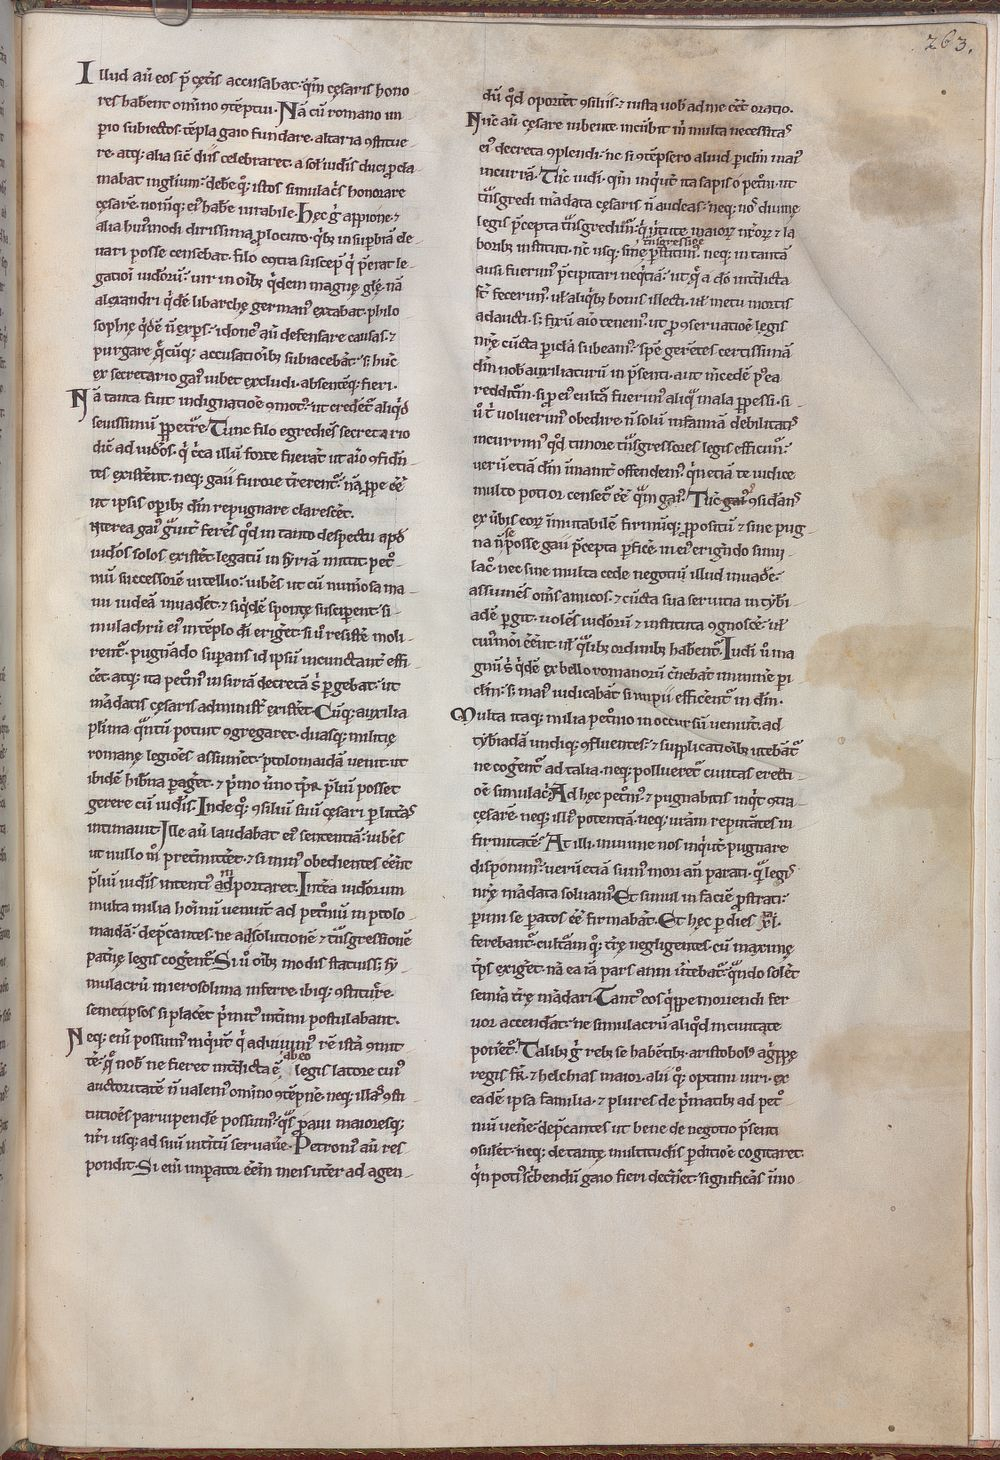 263.
Illud aū eos p̄ cęteris accusabat· qm̄ cęsaris hono
res haberent omnino ↄtēptui· Nā cū romano im
perio subiectos· tēpla gaio fundare· altaria ↄstitue
re· atq; alia sic̄ diis celebraret· a sol iudeis duci ꝓcla
mabat inglium· debe q; istos simulac̄s honorare
cęsarē· nomq; ei habe iurabile· Hęc ḡ appione·⁊
alia hui᷒modi dirissima ꝓlocuto· qb; in suꝑbiā de
uari posse censebat· filo
legatiōi iudeorū· uir in oīb; qdem magnę glę· nā
alexandri qdē libarchę german᷒ extabat· philo
sophię qdē n̄ exꝑs· idone᷒ aū defensare causas·⁊
purgare q̄cūq; accusatiōib; subiacebāt· s; hunc
ex secretario gai᷒ iubet excludi· absentēq; fieri·
Nā tanta fuit indignatiōe ↄmot᷒· ut crederet᷑ aliqd
seuissimū ꝑpetre· Tunc filo egrediēs secretario
dic̄ ad iudeos· q̄ c̄ca illū forte fuerāt ut aīo ↄfidn̄
tes existerent· neq; gaii furore trerent᷑· nā ꝓpe eē
ut ipsis opib; dm̄ repugnare claresceret·
Interea gai᷒ ferēs qd in tanto despectu apd
iudeos solos existeret· legatum in syriā mittit· pet°
niū successorē uitellio· iubēs ut cū numosa ma
nu iudeā inuaderet·⁊ siqdē sponte susciperent· si
mulachrū ei᷒ in tēplo dī erigeret· si ū resisterē moli
rent᷑· pugnādo suꝑans id ipsū incunctant̄ effi
ceret· atq; ita pet°ni᷒ in siriā decretā s̄ ꝑgebat· ut
mādatis cęsaris administ᷒ existeret· Cūq; auxilia
plīma qntū potuit ↄgregaret· duasq; militię
romanę legiōes assumeret· ptolomaidā uenit· ut
ibidē hib̄na ꝑageret·⁊ pmo uno tp̄r p̄liū posset
gerere cū iudeis· Inde q; ↄsiliū suū cęsari ꝑ litt̄as
intimauit· Ille aū laudabat ei᷒ sententiā· iubēs
ut nullo m̄ pretmitteret·⁊ si min᷒ obedientes eēent
p̄liū iudeis intenti᷒ adportaret· Int̄ea iudeorum
multa milia hoīmū uenīt ad pet°niū in ptolo
maidā· depcantes· ne ad solutionē ⁊ tn̄sgressionē
patrię legis cogerent᷑· Si ū oīb; modis statuisset sy
mulacrū in ierosolima inferre· ibiq; ↄstituere·
semetipsos si placeret pmit᷒ intimi postulabant·
Neq; eīm possum᷒ inqūt· q̄ aduiuim᷒ rē istā ↄmit
te· q̄ nob ne fieret int̄dicta ē ab eo legis latore cui᷒
auctoritatē n̄ ualem᷒ omīno ↄtēpne· neq; illa᷒ ↄsti
tutiōes paruipendē possum᷒· q̄s ꝓaui maioresq;
nr̄i usq; ad suū int̄itū seruauere· Petroni᷒ aū res
pondit· Si eīm imꝑator eēm meis uterer ad agen
dū qd oporteret ↄsiliis·⁊ iusta uob ad me eēt oratio·
Nūc aū cęsare iubente incūbit m̄ multa necessitas
ei᷒ decreta ↄplendi· ne si ↄtēpsero aliud ꝑiclm̄ mai᷒
incurrā· Tūc iudei· qm̄ inqunt ita sapis o pet°ni· ut
tn̄sgredi mādata cęsaris n̄ audeas· neq; nos diuinę
legis p̄cepta tn̄sgredim̄· q̄ uirtute maiorꝝ nr̄orꝝ ⁊ la
borib; instituti· nc̄ usq; sine tn̄sgressiōe p̄stitim᷒· neq; in tantā
ausi fuerim᷒ p̄cipitari neqtiā· ut q̄ a dō int̄dicta
st̄ fecerim᷒· ul aliqb; bonis illecti· ul metu mortis
adducti· s; fixū aīo tenem᷒· ut ꝓ ↄseruatiōe legis
nr̄ę cūcta ꝑicla subeam᷒· spē gerētes certissimā
dm̄ nob auxiliaturū in p̄senti· aut m̄cedē p ea
redditm̄· si ꝑ ei᷒ cultā fuerim᷒ aliq̄ mala ꝑpessi· si
ū t̄ uoluerim᷒ obedire n̄ solū infamiā debilitatis
incurrim᷒ qd timore tn̄sgressores legis efficim᷒·
uerū etiā dm̄ īmanit̄ offendem᷒· qn̄ etiā te iudice
multo potior censet᷑ eē q̄m gai᷒· Tūc ↄsidāns
ex ūbis eorꝝ īmutabilē firmūq; ꝓpositū ⁊ sine pug
na n̄ se posse gaii p̄cepta ꝑficē· in ei᷒ erigēdo simu
lac°· nec sine multa cede negotiū illud inuadē·
assumēs om̄s amicos·⁊ cūcta sua seruitia in tyb̄i
adē ꝑgit· uolēs iudeorū ⁊ instituta ↄgnoscē· ul
cui᷒moi eēent· ul q̄lib; ordinib; haberent᷑· Iudei ū ma
gnū s̄ qdē ex bello romanorū c̄nebāt iminere ꝑi
clm̄· s; mai᷒ iudicabāt si impii efficerent᷑ in dm̄·
Multa itaq; milia pet°nio in occursū uenīt· ad
tyb̄iadā undiq; ↄfluentes·⁊ supplicatiōib; utebāt᷑
ne cogerent᷑ ad talia· neq; polluerēt᷑ ciuitas erecti
oē simulac̄· Ad hęc pet°ni᷒·⁊ pugnabitis inqt ↄtra
cęsarē· neq; illi᷒ potentiā· neq; uram reputātes in
firmitatē· At illi· minime nos inqunt pugnare
disponim᷒· uerū etiā sum᷒ mori aū parati· q̄ legis
nr̄ę mādata soluam᷒· Et simul in faciē ꝓstrati·
ꝑimi se paratos eē firmabāt· Et hęc ꝑ dies xl·
ferebantur· cultam q; t̄rę negligentes· cū maxime
tp̄s exigeret· nā ea iā pars anni īt̄ebat᷑· quādo solet
semīa t̄rę mādari· Tant᷒ eos qippe moriendi fer
uor accenderat· ne simulacrū aliqd in ciuitate
poneret᷑· Talib; ḡ reb; se habētib; aristobol᷒ agppę
regis fr̄·⁊ helchias maior· alii q; optimi uiri· ex
eadē ipsa familia·⁊ plures de pmatib; ad pet°
niū uenere· depcantes ut bene de negotio p̄senti
ↄsuleret· neq; de tantę multitudis ꝑditiōe cogitaret·
qn̄ poti᷒ sc̄bendū gaio fieri decneret· significās īmo